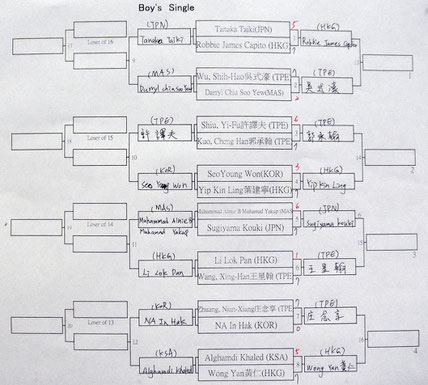 Boy's Single
(JPN)
Tanaka Taiki
Tanaka Taiki(JPN)
5
Robbie James Capito (HKG)
7
(HKG)
Robbie James Capito
17
Loser of 16
9
1
13
1
(MAS)
Darryl chia soo Yew
Wu, Shih-Hao吳式濠 (TPE
7
Darryl Chia Soo Yew(MAS)
2
(TPE)
吳式濠
(TPE)
許譯夫
Shiu, Yi-Fu許譯夫 (TPE)
6
Kuo, Cheng Han郭承翰 (TPE)
7
(TPE)
郭承翰
18
Loser of 15
10
3
14
2
(KOR)
Seo Young Won
SeoYoung Won(KOR)
3
Yip Kin Ling葉建寧(HKG)
7
(HKG)
Yip Kin Ling
4
(MAS)
Muhammad
Muhamad Yakup
6
Sugiyama Kouki (JPN)
7
(JPN)
Sugiyama kouki
Loser of 14
11
5
15
3
(HKG)
Li Lok Pan
Li Lok Pan (HKG)
1
Wang, Xing-Han王星翰 (TPE
7
(TPE)
王星翰
6
(KOR)
NA In Hak
Zhuang, Nian-Xiang庄念享 (TPE
7
NA In Hak (KOR)
0
(TPE)
庄念享
20
Loser of 13
12
7
16
4
(KSA)
Alghamdi Khaled
Alghamdi Khaled (KSA)
5
Wong Yan黃仁(HKG)
7
(HKG)
Wong Yan黃仁
8